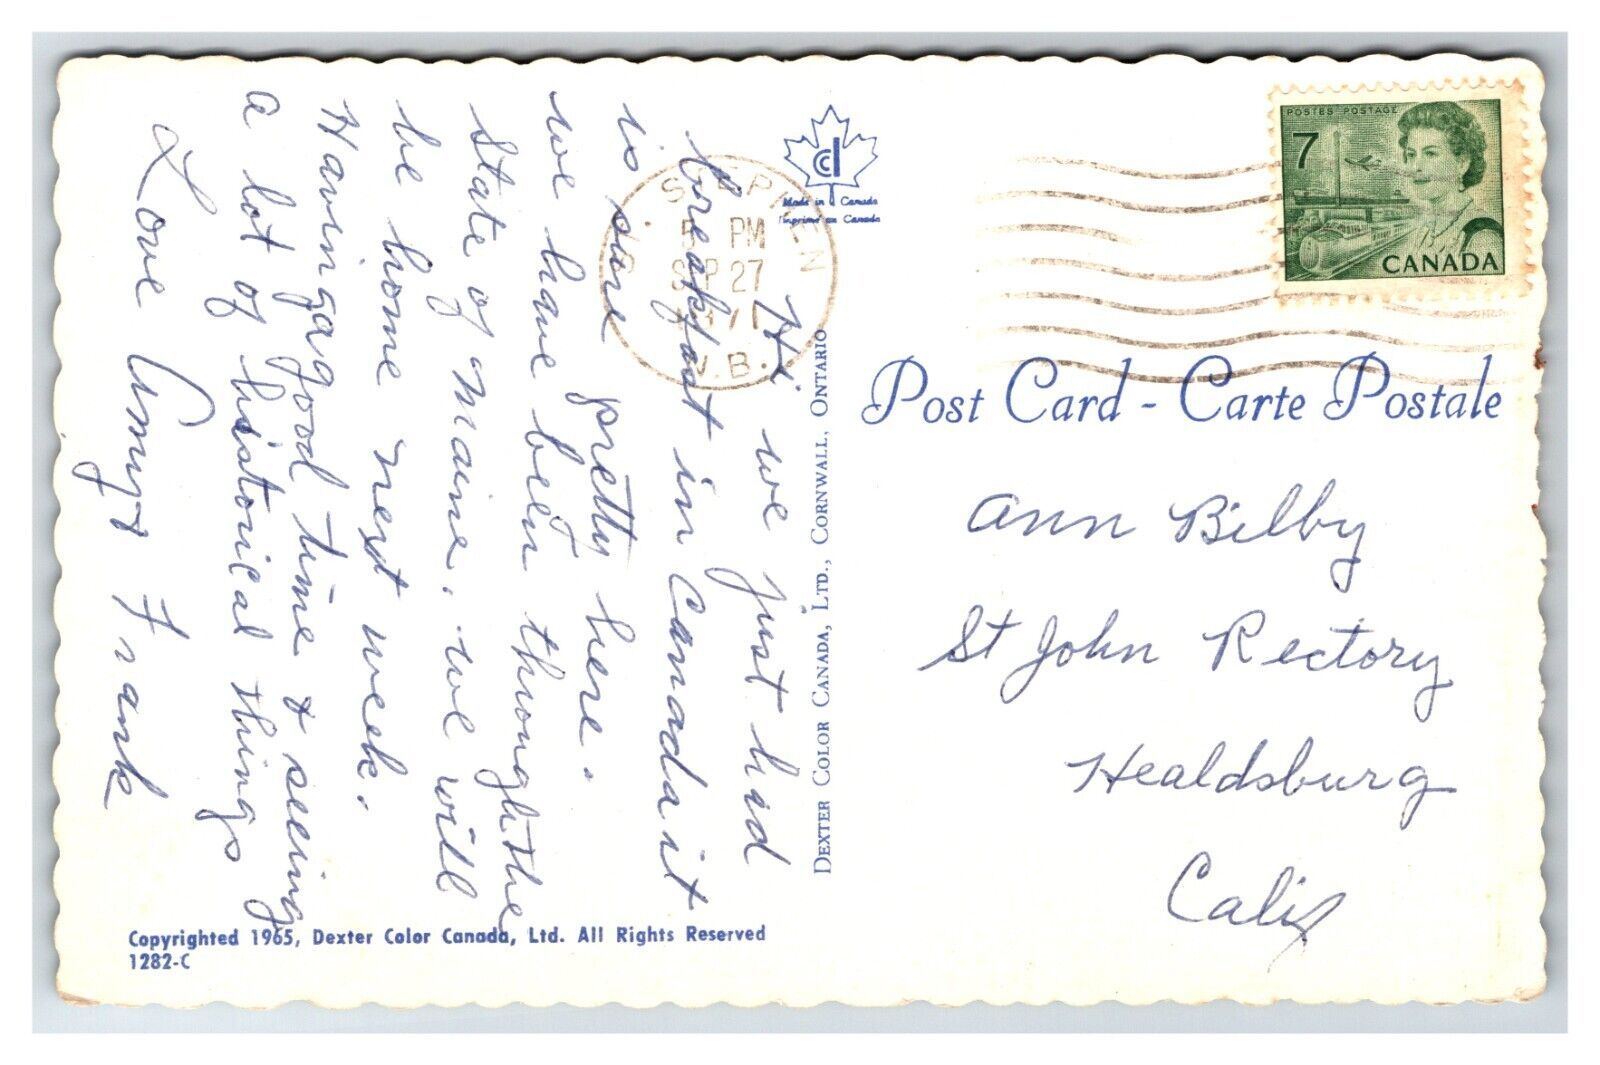 Hi we just had
breakfast in Canada it
is sure pretty here.
we have been through the
State of Maine. we will
be home next week.
Having a good time & seeing
a lot of historical things
Love Amy & Frank
Made in Canada
Imprimé au Canada
ST. STEPHEN
PM
SEP 27
1971
N.B.
POSTES POSTAGE
7
CANADA
Post Card - Carte Postale
Ann Bilby
St John Rectory
Healdsburg
Calif
DEXTER COLOR CANADA, LTD., CORNWALL, ONTARIO
Copyrighted 1965, Dexter Color Canada, Ltd. All Rights Reserved
1282-C